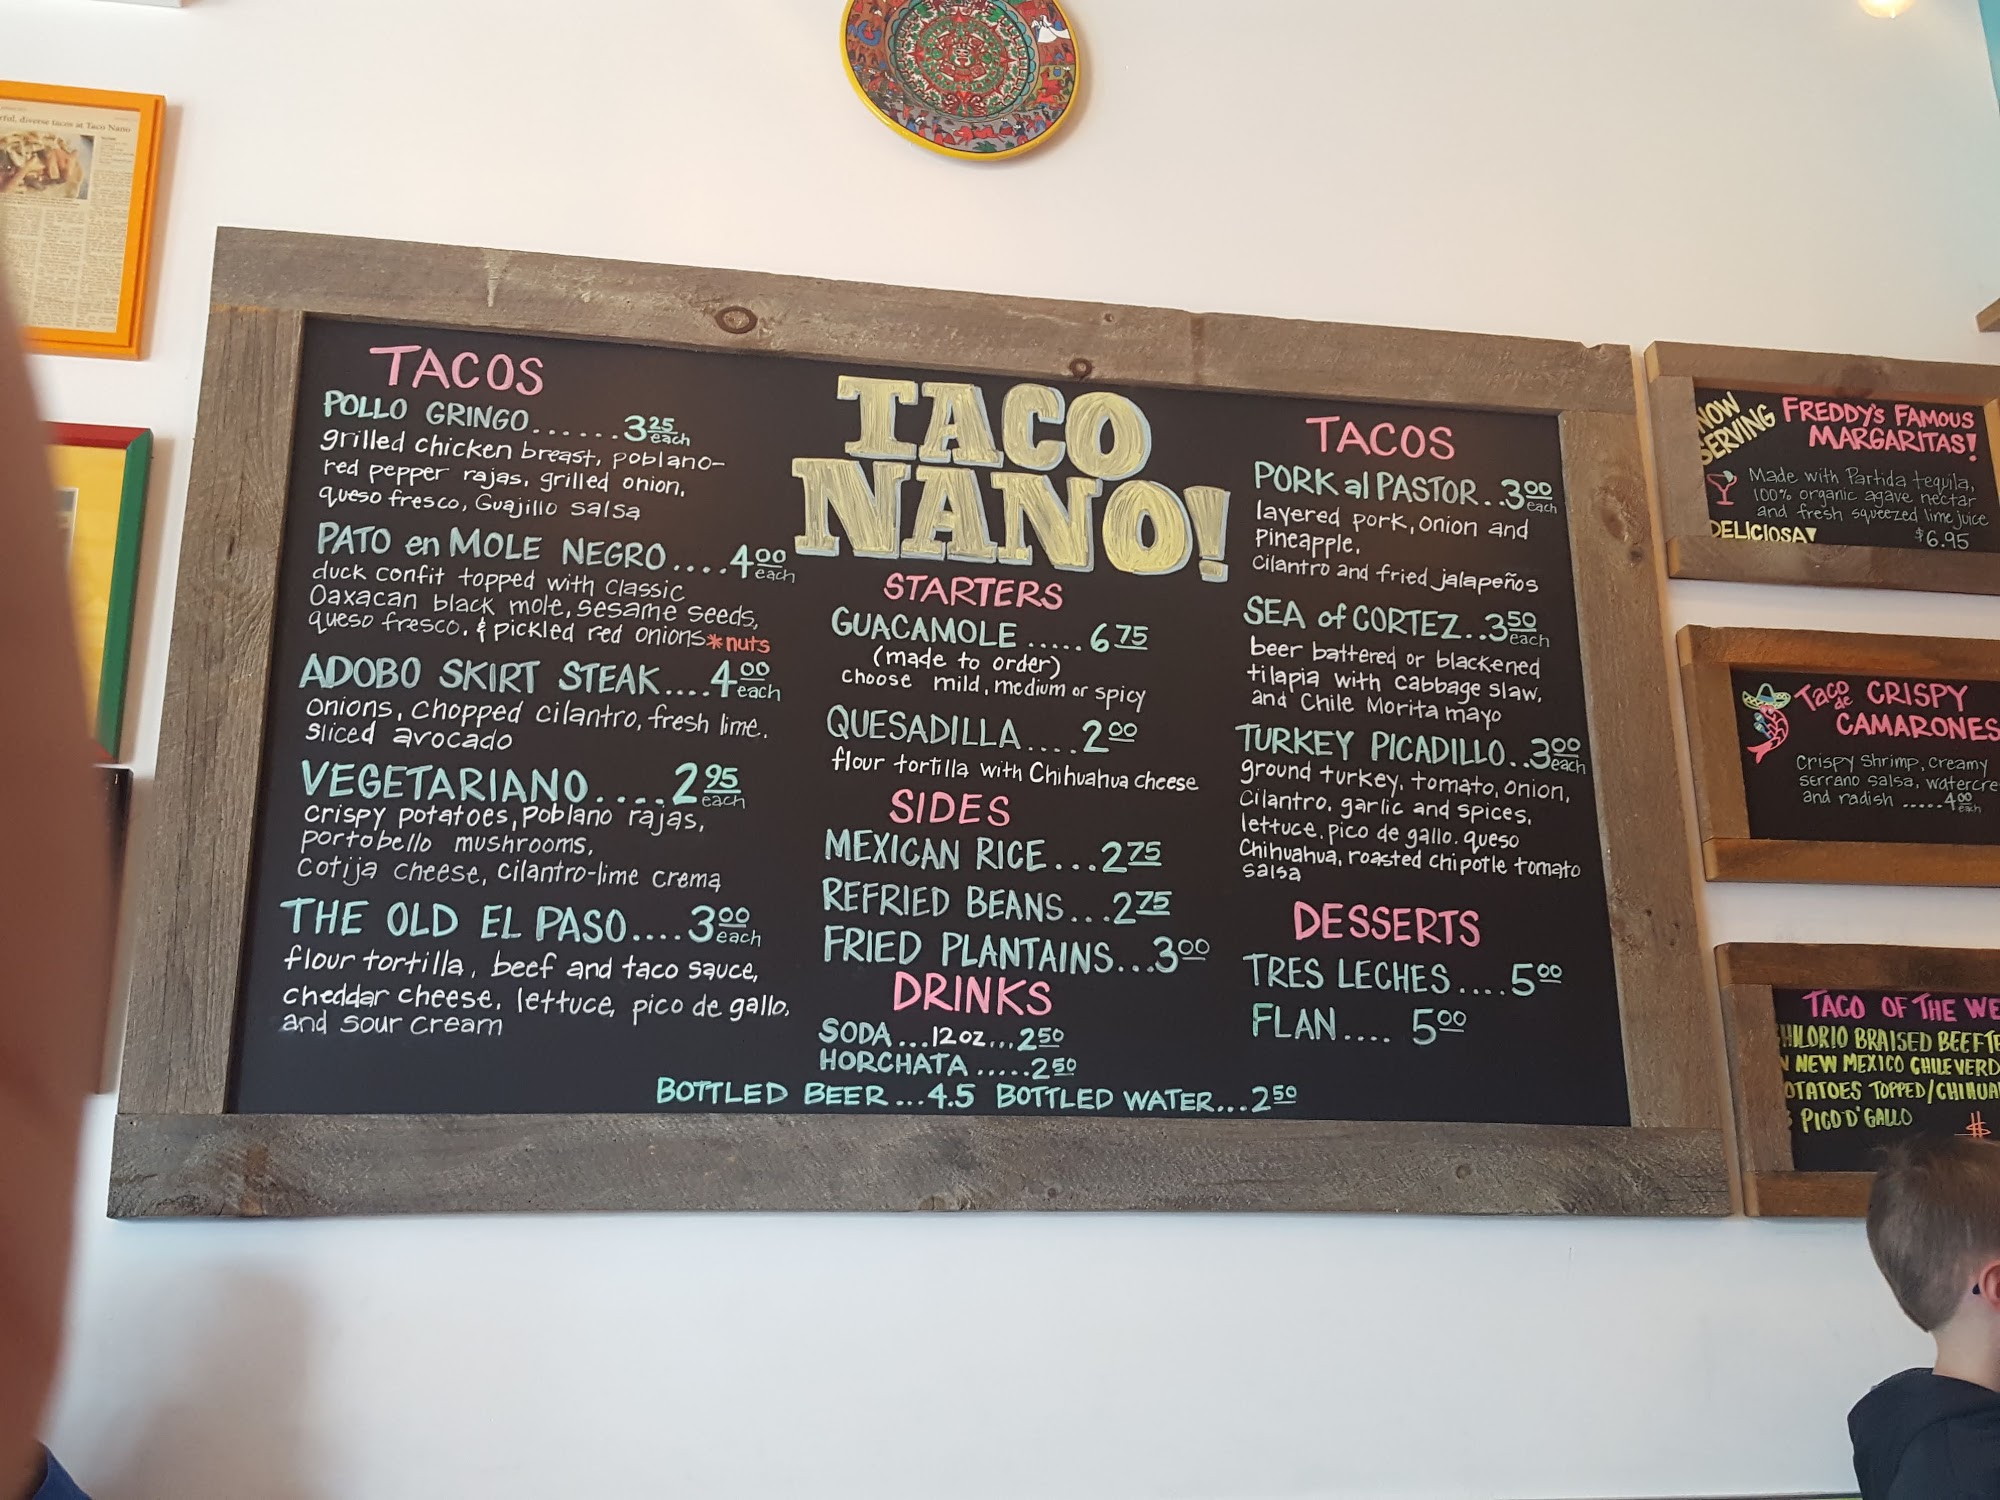 rful, diverse tacos at Taco Nano
TACOS
POLLO GRINGO......3.25 each
grilled chicken breast, poblano-
red pepper rajas, grilled onion,
queso fresco, Guajillo salsa
PATO en MOLE NEGRO....4.00 each
duck confit topped with classic
Oaxacan black mole, sesame seeds,
queso fresco, & pickled red onions *nuts
ADOBO SKIRT STEAK....4.00 each
onions, chopped cilantro, fresh lime,
sliced avocado
VEGETARIANO....2.95 each
crispy potatoes, Poblano rajas,
portobello mushrooms,
Cotija cheese, cilantro-lime crema
THE OLD EL PASO....3.00 each
flour tortilla, beef and taco sauce,
cheddar cheese, lettuce, pico de gallo,
and sour cream
TACO
NANO!
STARTERS
GUACAMOLE.....6.75
(made to order)
choose mild, medium or spicy
QUESADILLA....2.00
flour tortilla with Chihuahua cheese
SIDES
MEXICAN RICE...2.75
REFRIED BEANS...2.75
FRIED PLANTAINS...3.00
DRINKS
SODA...12oz...2.50
HORCHATA.....2.50
BOTTLED BEER...4.5 BOTTLED WATER...2.50
TACOS
PORK al PASTOR..3.00 each
layered pork, onion and
Pineapple,
cilantro and fried jalapeños
SEA of CORTEZ..3.50 each
beer battered or blackened
tilapia with cabbage slaw,
and Chile Morita mayo
TURKEY PICADILLO..3.00 each
ground turkey, tomato, onion,
cilantro, garlic and spices,
lettuce, pico de gallo, queso
Chihuahua, roasted chipotle tomato
salsa
DESSERTS
TRES LECHES....5.00
FLAN.... 5.00
NOW SERVING
FREDDY'S FAMOUS
MARGARITAS!
Made with Partida tequila,
100% organic agave nectar
and fresh squeezed lime juice
DELICIOSA! $6.95
Taco de CRISPY
CAMARONES
Crispy Shrimp, creamy
serrano salsa, watercre
and radish .....4.00 each
TACO OF THE WE
HILORIO BRAISED BEEF TE
N NEW MEXICO CHILE VERD
OTATOES TOPPED/CHIHUA
PICO D'GALLO $